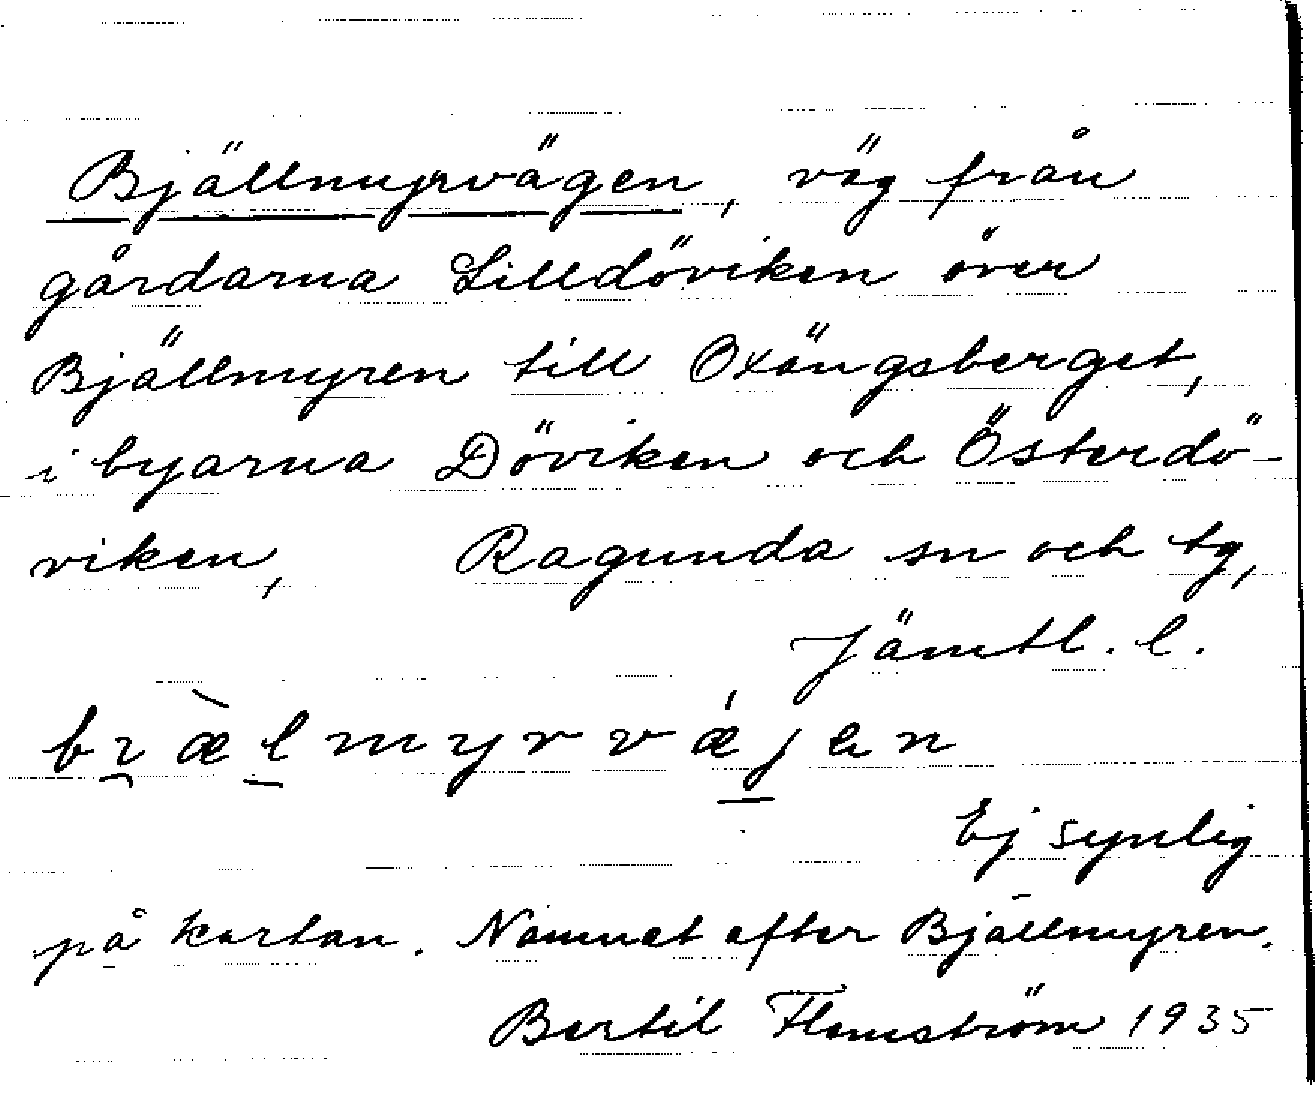 Bjällmyrvägen, väg från
gårdarna Lilldöviken över
Bjällmyren till Oxängsberget,
i byarna Döviken och Österdö-
viken, Ragunda sn och tg,
Jämtl. l.
bı̯æ̀l̲myrvǽj̲en
Ej synlig
på kartan. Namnet efter Bjällmyren.
Bertil Flemström 1935